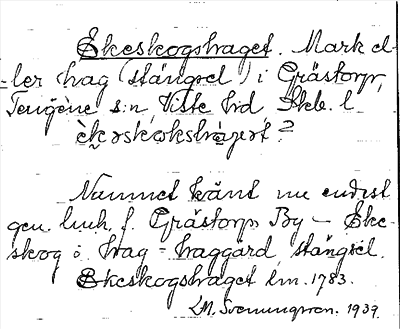 Ekeskogshaget. Mark el-
ler hag (stängsel) i Grästorp,
Tengene s:n Viste hd Skbl.

Namnet känt nu endast
gen. luh. f. Grästorp By – Eke-
skog i hag = haggård, stängsel.
Ekeskogshaget lm. 1783.
LM. Svenungsson. 1939